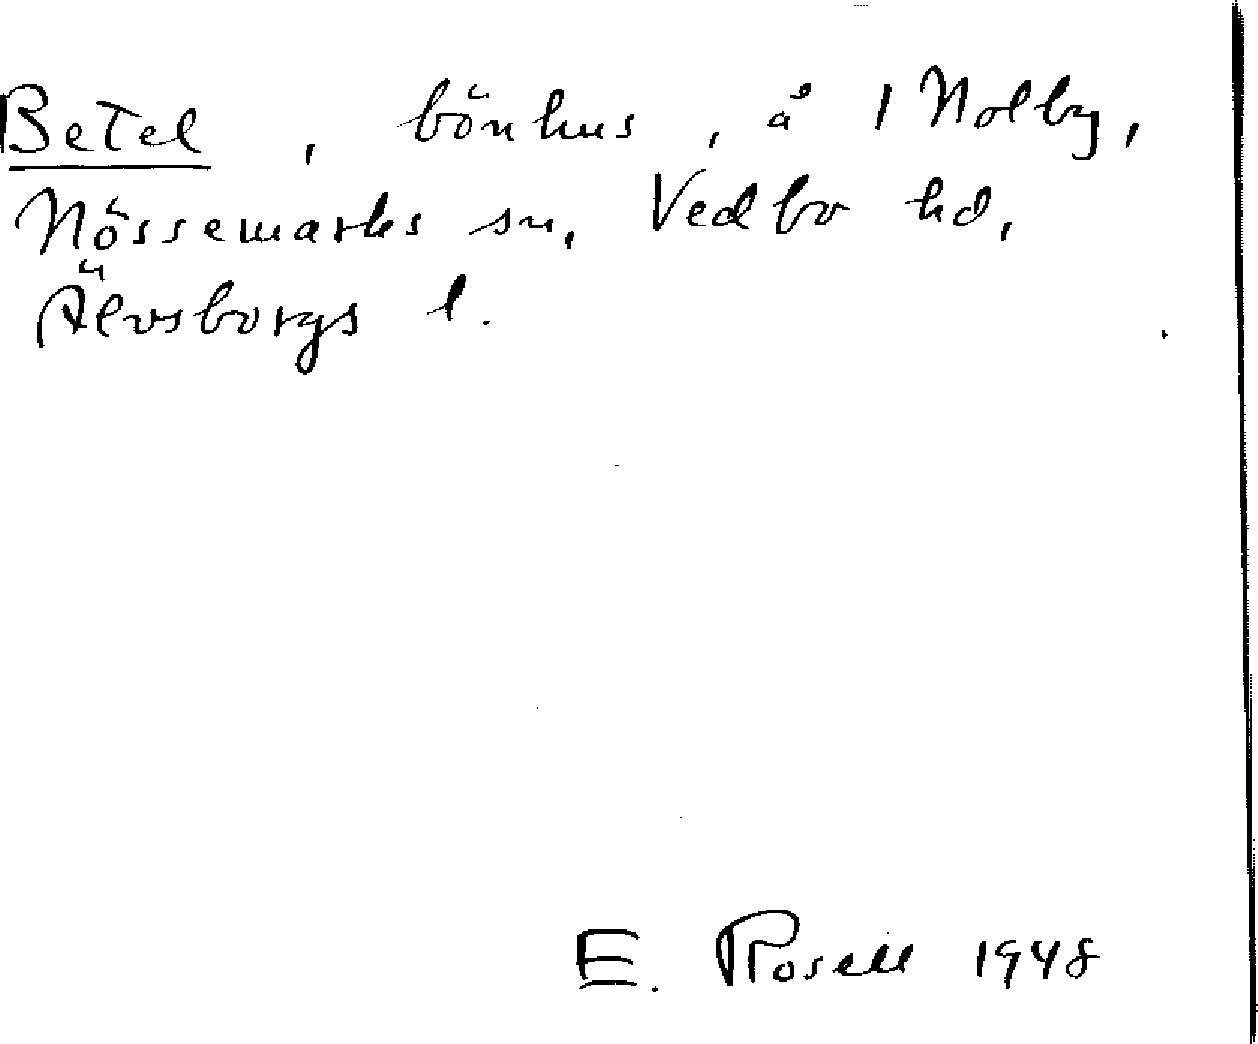 Betel, bönhus, å 1 Nolby,
Nössemarks sn, Vedbo hd,
Älvsborgs l.
E. Rosell 1948